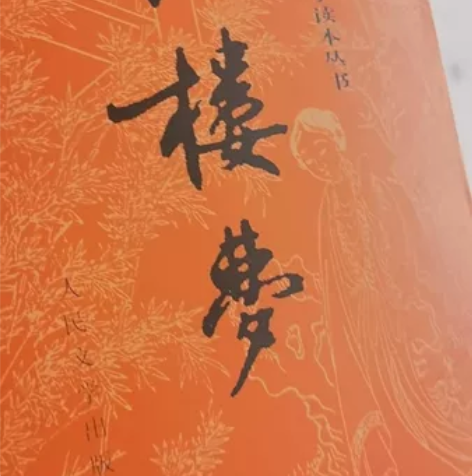 读本丛书
楼梦
人民文学出版